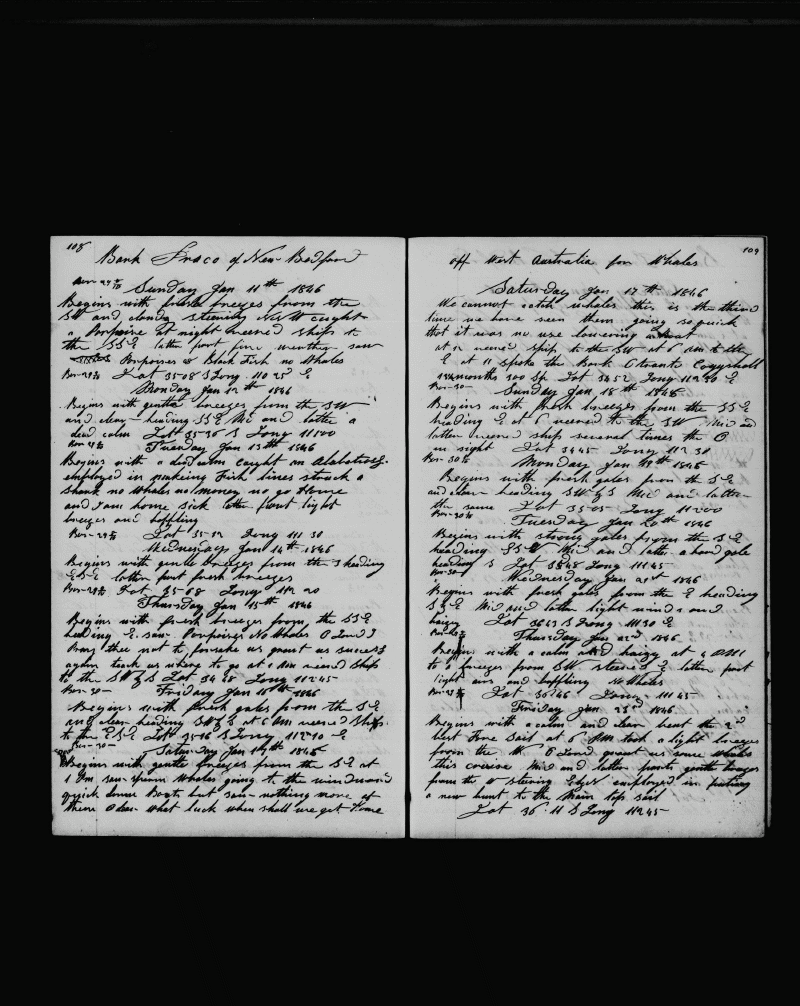 108
Bark Draco of New Bedford
Sunday Jan 11th 1846
Begins with fresh breezes from the
SW and cloudy steering caught
a Porpoise at night weered ship to
the SSE latter part fine weather saw
Porpoises & Black Fish no Whales
Lat 35-08 S Long 110 25 E
Monday Jan 12th 1846
Begins with gentle breezes from the SW
and clear heading SSE Mid and latter a
dead calm Lat 35-36 S Long 111 00
Tuesday Jan 13th 1846
Begins with a dead calm caught an Alabatross
employed in makeing Fish lines struck a
Shark no Whales no money no go Home
and I am home sick latter part light
breezes and baffling
Lat 35-12 Long 111 30
Wednesday Jan 14th 1846
Begins with gentle breezes from the S heading
ESE latter part fresh breezes
Lat 35-08 Long 112 20
Thursday Jan 15th 1846
Begins with fresh breezes from the SSE
heading E saw Porpoises No Whales O Lord I
Pray thee not to forsake us grant us success
again teach us where to go at 1 AM weered Ship
to the SW & S Lat 34 48 Long 112 45
Bar-30- Friday Jan 16th 1846
Begins with fresh gales from the SE
and clear heading SW & S at 6 AM weered Ship
to the ESE Latt 35-16 S Long 112 10 E
Bar-30- Saturday Jan 17th 1846
Begins with gentle breezes from the SE at
1 PM saw sperm Whales going to the windward
quick lower Boats but saw nothing more of
them O dear what luck when shall we get Home
109
off West Australia for Whales
Saturday Jan 17th 1846
We cannot catch whales this is the third
time we have seen them going so quick
that it was no use lowering a boat
at weered ship to the SW at 6 AM to the
E at 11 spoke the Bark Coggeshall
months 300 Sp Lat 34 52 Long 112 30 E
Bar-30- Sunday Jan 18th 1846
Begins with fresh breezes from the SSE
heading E at 6 weered to the SW Mid and
latter weered ship several times the
in sight Lat 34 45 Long 112 30
Monday Jan 19th 1846
Begins with fresh gales from the SE
and clear heading SW & S Mid and latter
the same Lat 35-05 Long 112 00
Tuesday Jan 20th 1846
Begins with strong gales from the SE
heading SSW Mid and latter a hard gale
heading S Lat Long 111 45
Wednesday Jan 21st 1846
Begins with fresh gales from the E heading
S & E Mid and latter light winds and
haizy Lat 36 43 S Long 111 30 E
Thursday Jan 22nd 1846
Begins with a calm and haizy at 4 AM
to breezes from SW steered E latter part
light airs and baffling No Whales
Lat 36 46 Long 111 45
Friday Jan 23rd 1846
Begins with a calm and clear bent the 2nd
best Fore Sail at 6 PM took a light breeze
from the W O Lord grant us some whales
this cruise Mid and latter parts gentle breezes
from the steering employed in puting
a new bunt to the Main top sail
Lat 36-11 S Long 112 45